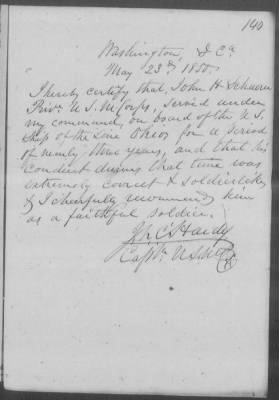 140
Washington, D Ca
May 23d, 1850.
I hereby certify that, John H.
Priv. U.S.M Corps, served under
my command, on board of the U.S.
Ship of the Line Ohio, for a period
of nearly three years, and that his
conduct during that time was
extremely correct & soldierlike,
& I cheerfully recommend him
as a faithful soldier.
C. Hardy
Capt.